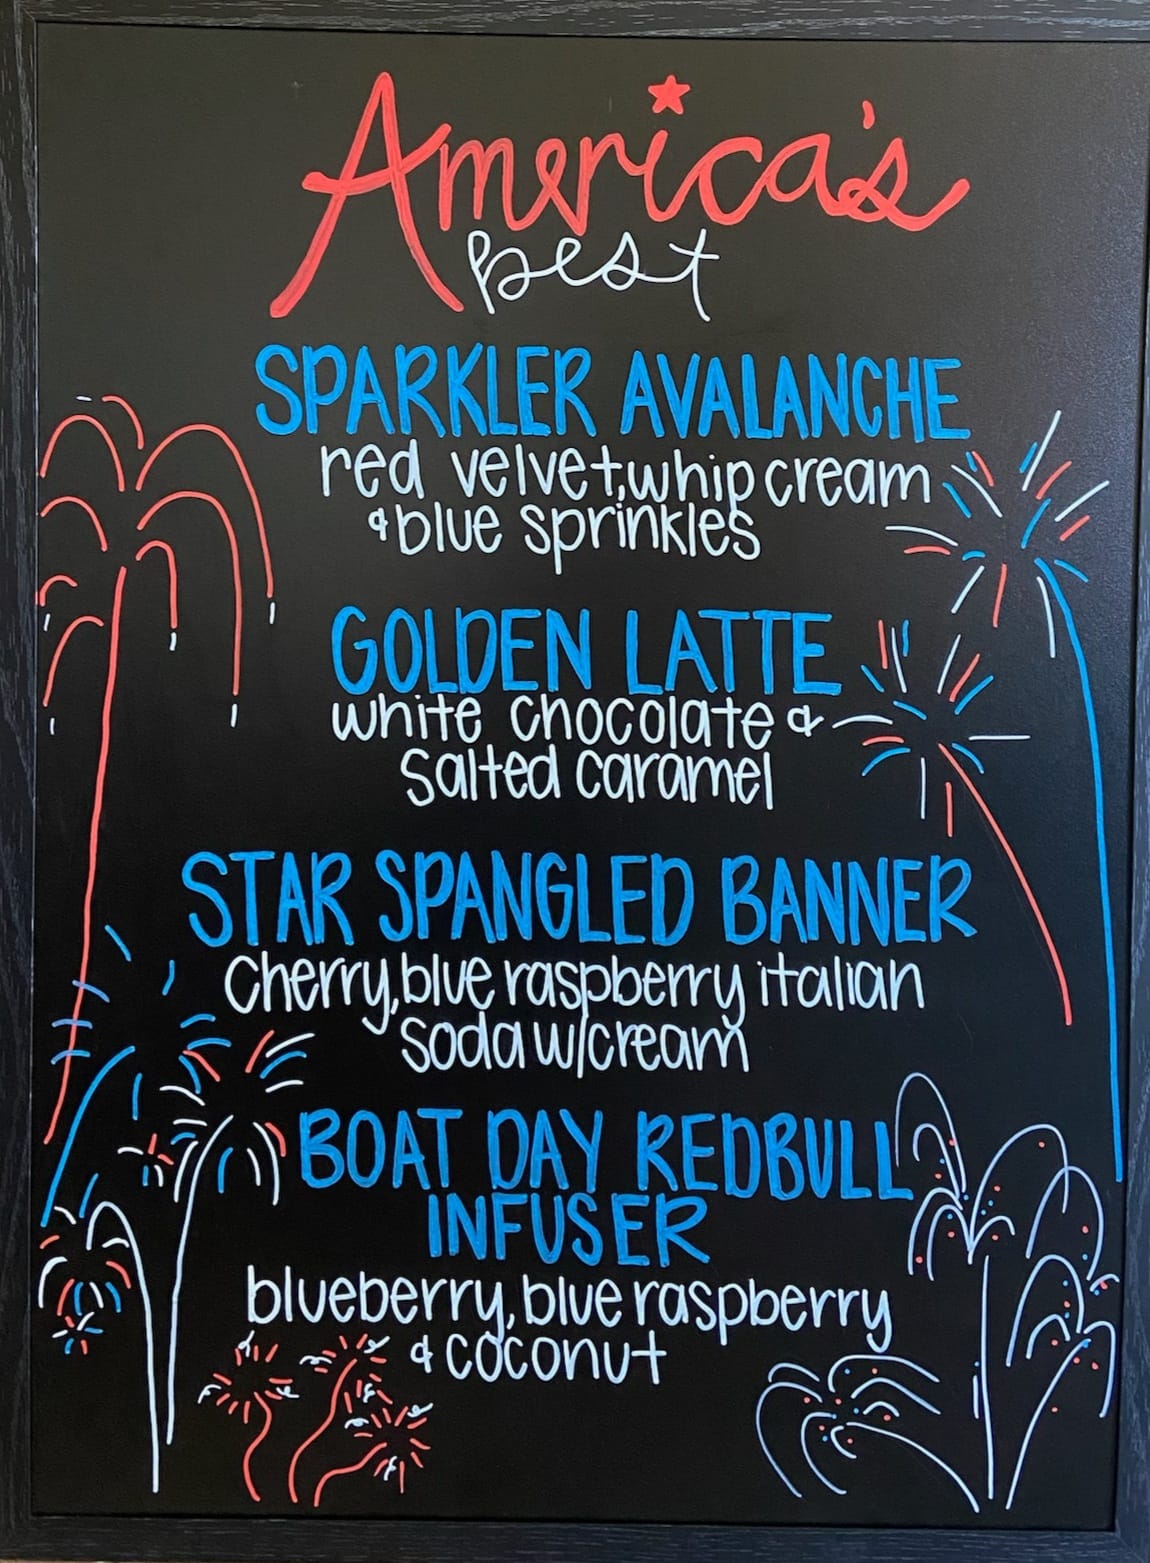 America's
best
SPARKLER AVALANCHE
red velvet, whip cream
& blue sprinkles
GOLDEN LATTE
white chocolate &
salted caramel
STAR SPANGLED BANNER
Cherry, blue raspberry italian
soda w/cream
BOAT DAY REDBULL
INFUSER
blueberry, blue raspberry
& coconut